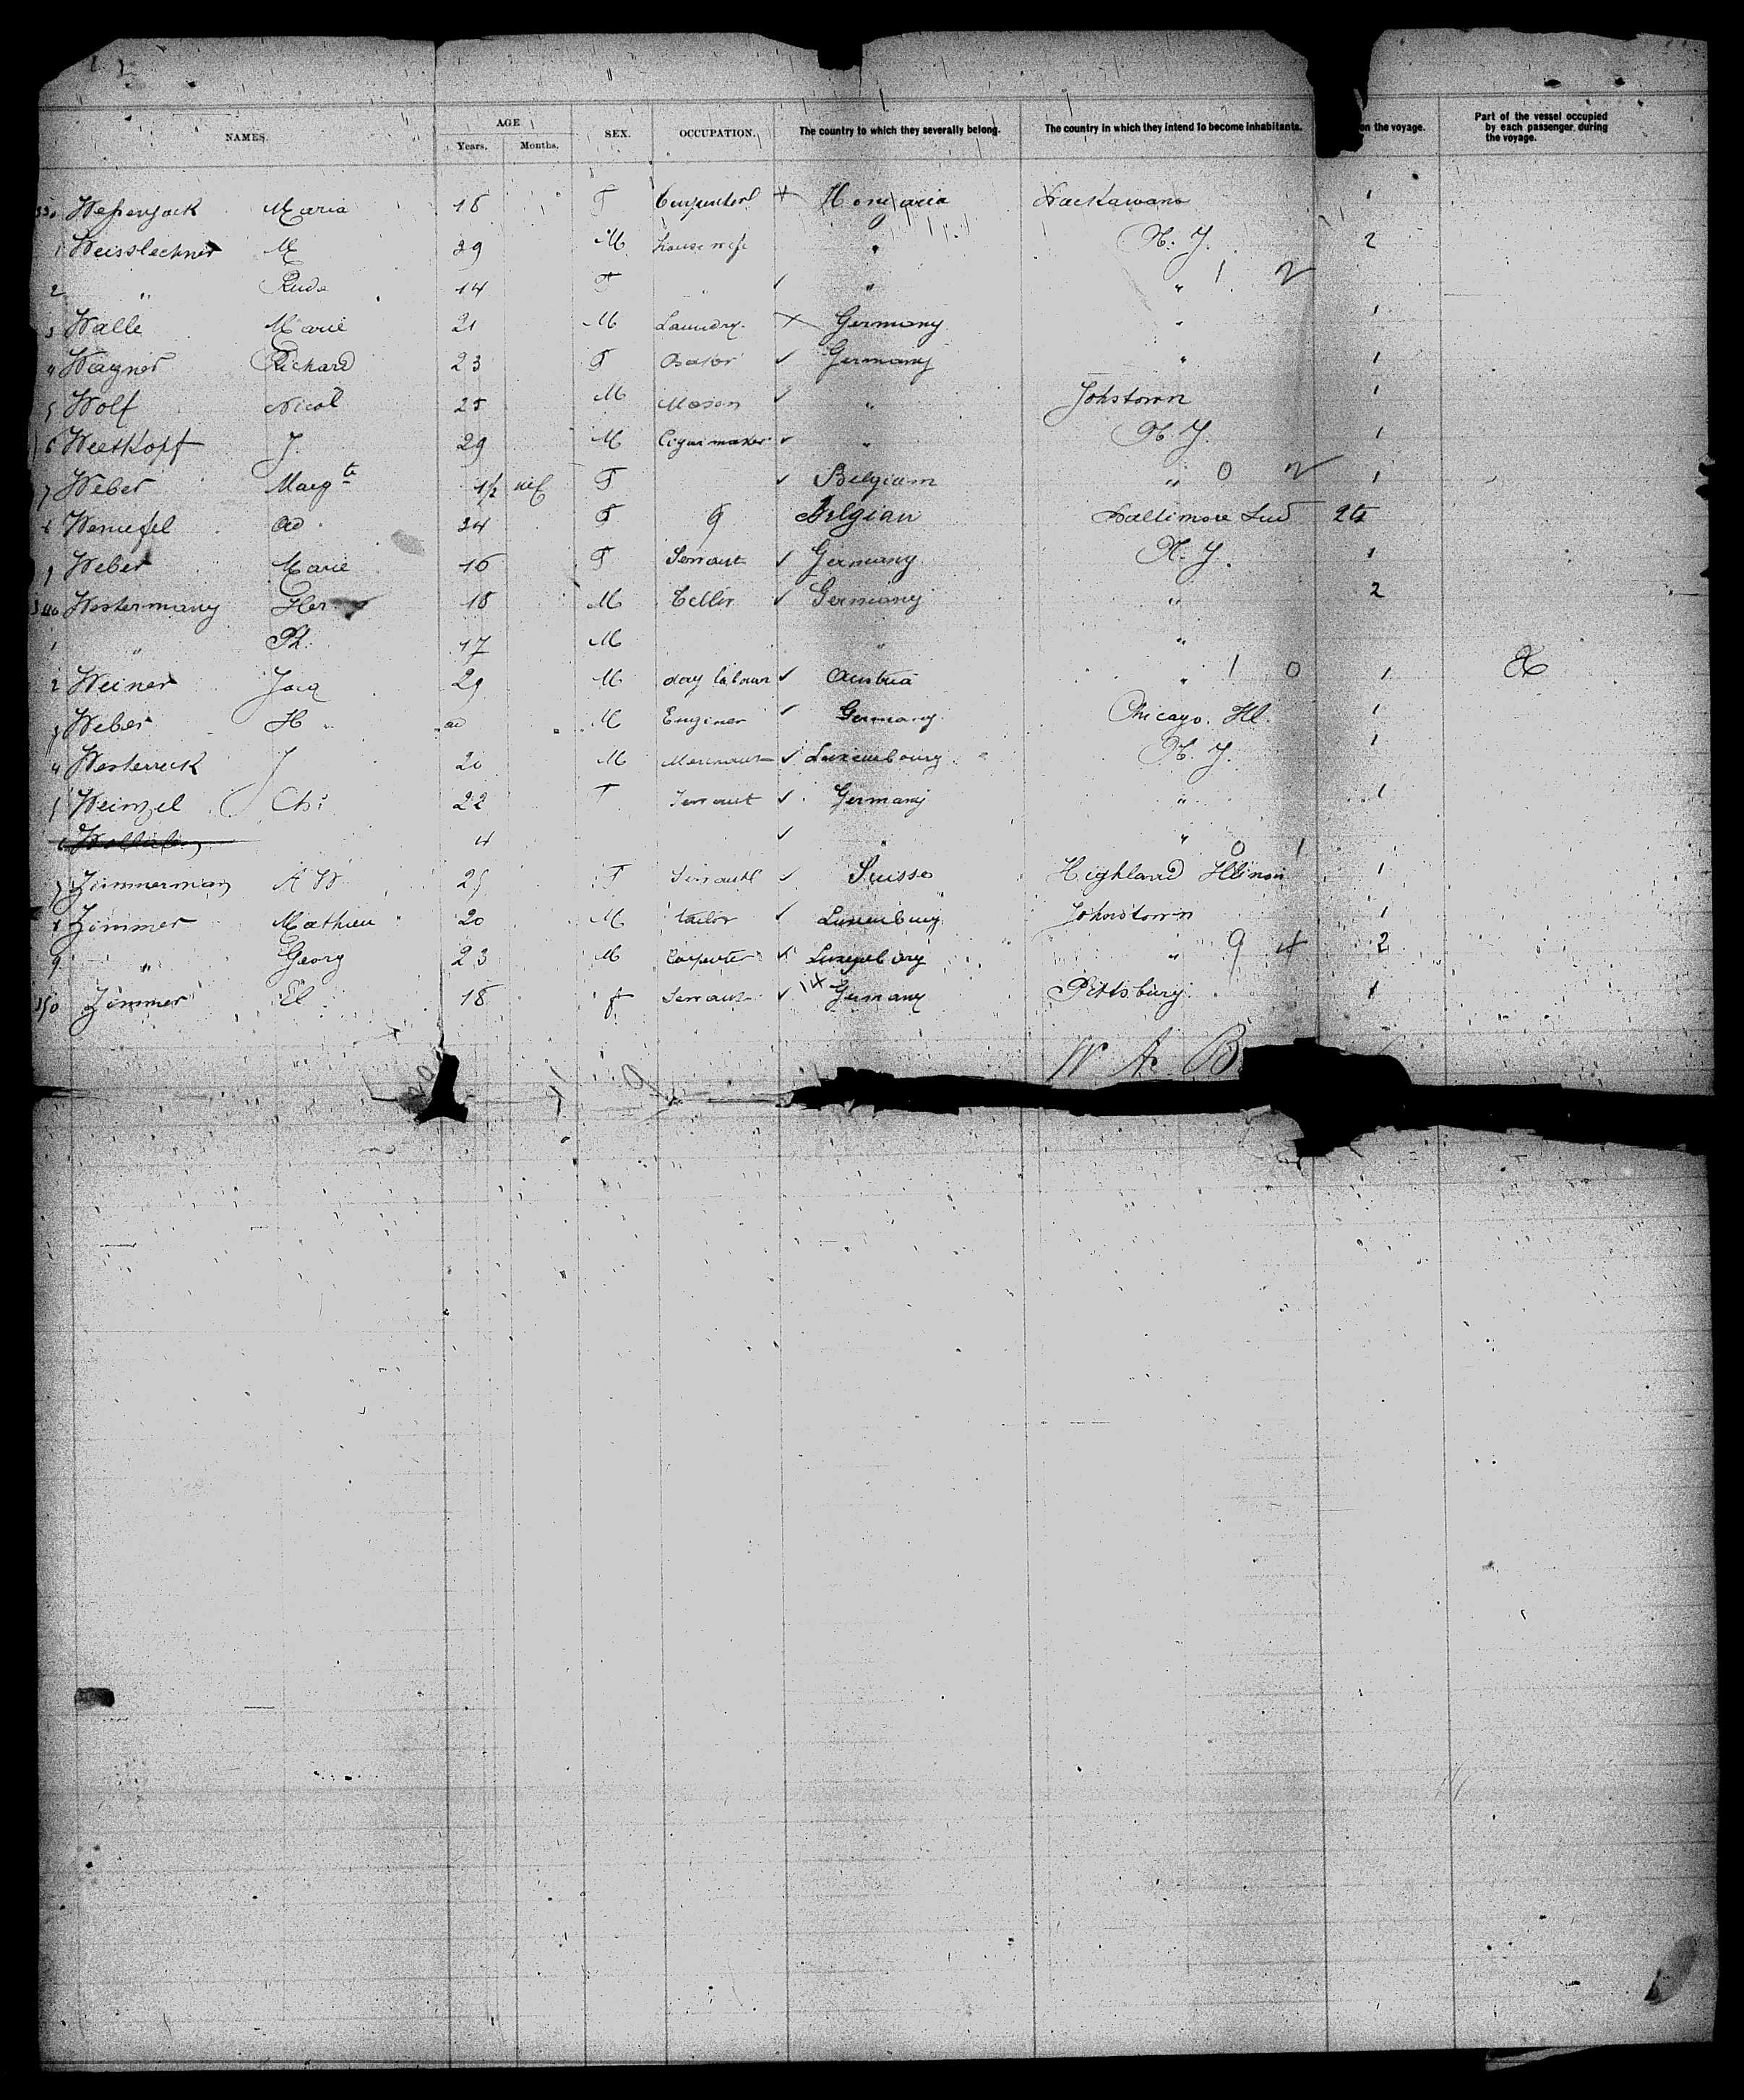 NAMES. AGE Years. Months. SEX. OCCUPATION. The country to which they severally belong. The country in which they intend to become inhabitants. on the voyage. Part of the vessel occupied by each passenger during the voyage.
Maria 18 F 1
1 Weisslechner M 29 M house wife " N. Y. 2
2 " 14 F " " "
3 Walle Marie 21 M Laundry Germany " 1
4 Wagner Richard 23 F Germany " 1
5 Wolf Nicol 25 M Mason " Johstown 1
6 J. 29 M Cigar maker " N. Y. 1
7 Weber Margte 1½ F Belgium " 1
8 24 F Belgian Baltimore
9 Weber Marie 16 F Servant Germany N. Y. 1
340 Westermany Her 18 M Germany " 2
1 " Ph. 17 M " "
2 Weiner 29 M day labour Austria " 1
3 Weber H M Enginer Germany Chicago. Ill. 1
4 J 20 M Luxembourg N. Y. 1
5 Weinzel Chr 22 F Servant Germany " 1
6 4 " "
7 Zimmerman F Servant Suisse Highland Illinois 1
8 Zimmer Mathieu 20 M tailor Luxemburg Johnstown 1
9 " Georg 23 M Luxemburg " 2
350 Zimmer El 18 f Servant Germany Pittsburg 1
W. A. B